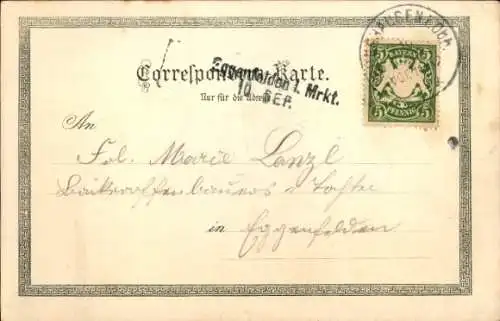 Correspondenz-Karte.
Eggenfelden i. Mrkt.
10. SEP.
Nur für die Adresse
BAYERN
5 5
PFENNIG
5 5
An
Frl. Marie Lanzl
in Eggenfelden